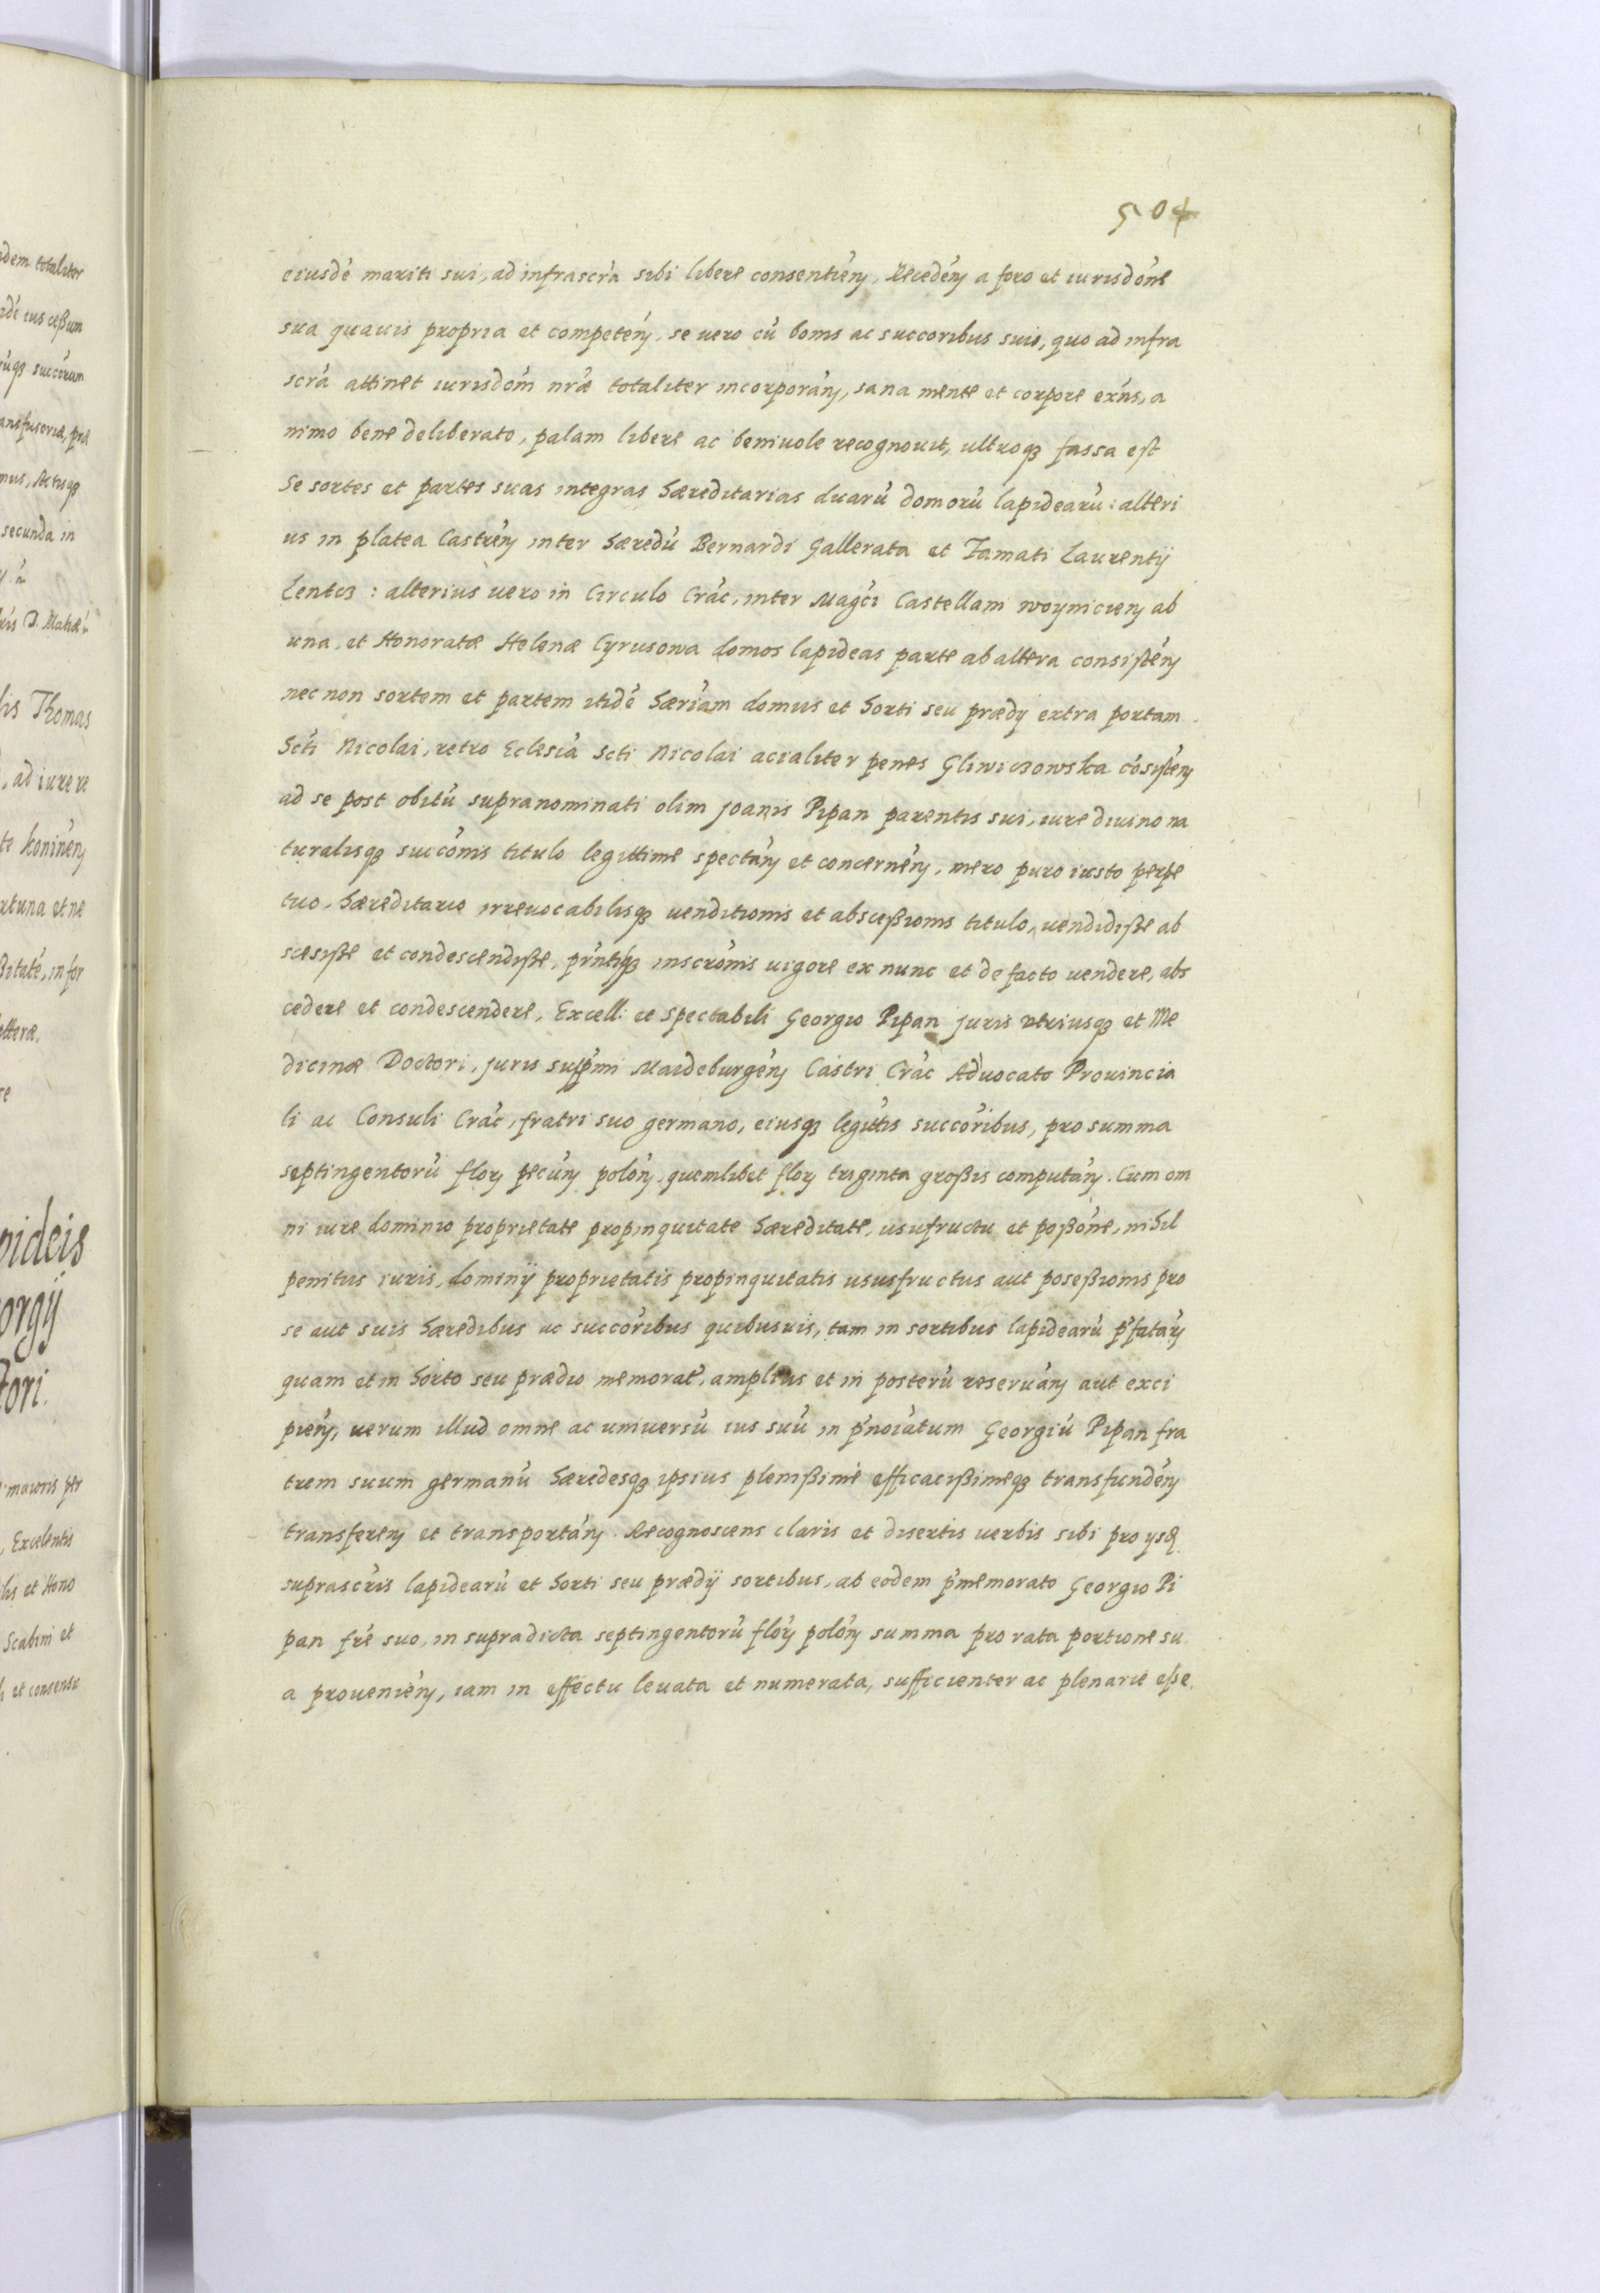 504
eiusdé mariti sui, ad infrascra sibi libere consentién, Recedén a foro et iurisdóne
sua quauis propria et competén, se uero cú bonis ac succoribus suis, quo ad infra
scrá attinet iurisdóni nráe totaliter incorporán, sana mente et corpore exńs, a
nimo bene deliberato, palam libere ac beniuole recognouit, ultroq3 fassa est
Se sortes et partes suas integras haereditarias duarú domorú lapidearú: alteri
us in platea Castrén inter haeredú Bernardi Gallerata et Famati Laurentij
Lentcz: alterius uero in Circulo Crac, inter Magci Castellani woynicien ab
una, et Honoratae Helenae Cyrusowa domos lapideas parte ab altera consistén
nec non sortem et partem itidé haeriam domus et horti seu praedij extra portam
Scti Nicolai, retro Eclesiá Scti Nicolai acialiter penes Gliwiczowska cósistén
ad se post obitú supranominati olim Joanis Pipan parentis sui, iure diuino na
turalisq3 succónis titulo legittime spectán et concernén, mero puro iusto perpe
tuo, haereditario irreuocabilisq3 uenditionis et abscessionis titulo, uendidisse ab
scesisse et condescendisse, prntiq3 inscrónis uigore ex nunc et de facto uendere, abs
cedere et condescendere, Excell: et spectabili Georgio Pipan juris utriusq3 et Me
dicinae Doctori, juris supmi Maideburgén Castri Crác Aduocato Prouincia
li ac Consuli Crác, fratri suo germano, eiusq3 legittis succoribus, pro summa
septingentorú flory pecún polón, quemlibet flory triginta grossis compután. Cum om
ni iure dominio proprietate propinquitate haereditate, usufructu et possóne, nihil
penitus iuris, dominij proprietatis propinquitatis ususfructus aut posessionis pro
se aut suis haeredibus ac succoribus quibusuis, tam in sortibus lapidearú pfatary
quam et in horto seu praedio memorat, amplius et in posterú reseruán aut exci
pién, uerum illud omne ac uniuersú ius suú in pnoiatum Georgiú Pipan fra
trem suum germanú haeredesq3 ipsius plenissimé efficacissimeq3 transfundén
transferen et transportán. Recognoscens claris et disertis uerbis sibi pro ysd
suprascris lapidearú et horti seu praedij sortibus, ab eodem pmemorato Georgio Pi
pan fré suo, in supradicta septingentorú flory polón summa pro rata portione su
a prouenién, iam in effectu leuata et numerata, sufficienter ac plenarie esse.